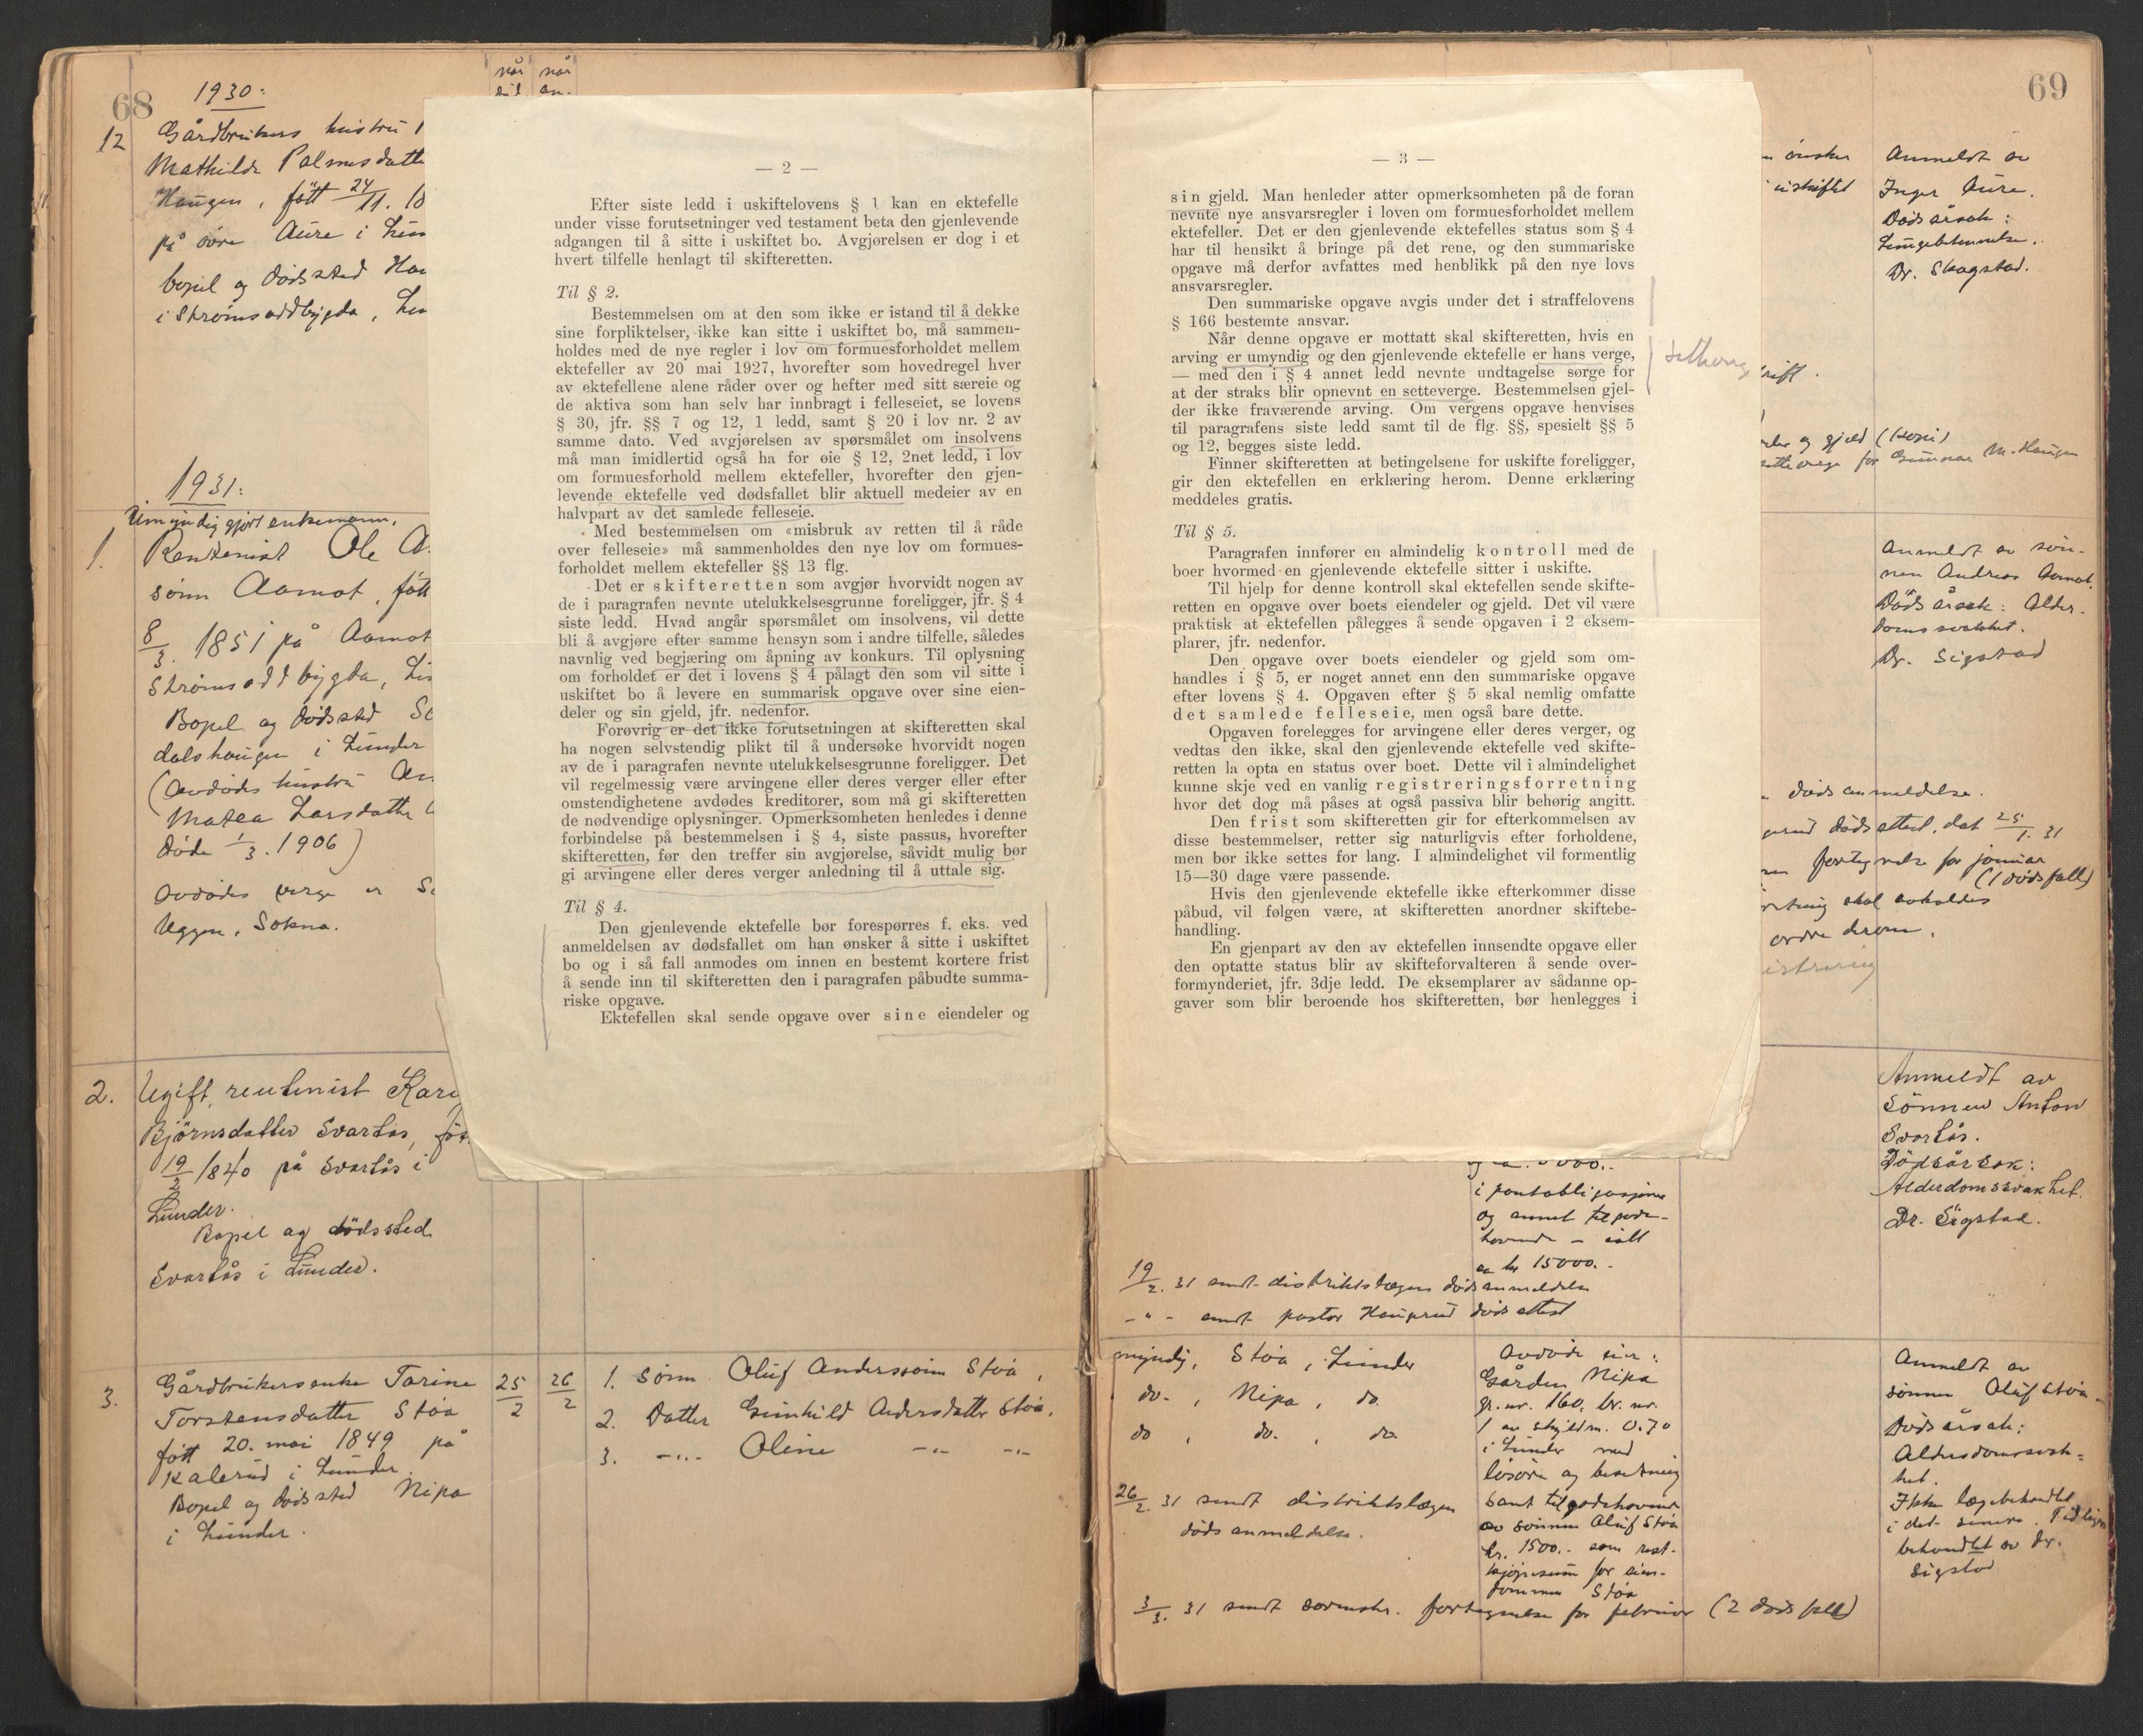 68
1930:
når når
12 Gårdbrukers hustru
Mathilde Palmesdatte
Haugen, født 24/11. 18
på øvre Aure i Lun
bopel og dødssted Hau
i Strømsoddbygda, Lun
1931:
Umyndiggjort enkemann,
1. Rentenist Ole A
sønn Aamot, født
8/3. 1851 på Aamot
Strømsoddbygda, Lu
Bopel og dødssted So
dalshaugen i Lunder
(Avdødes hustru An
Matea Larsdatter
døde 1/3. 1906)
Avdødes verge er
Uggen, Sokna.
2. Ugift, rentenist Kari
Bjørnsdatter Svartås, fø
19/2 1840 på Svartås i
Lunder.
Bopel og dødssted
Svartås i Lunder.
3. Gårdbrukerenke Torine 25/2 26/2 1. Sønn Oluf Anderssønn Støa,
Torstensdatter Støa 2. Datter Gunhild Andersdatter Støa,
født 20. mai 1849 på 3. -"- Oline -"- -"-
Kalerud i Lunder.
Bopel og dødssted Nipa
i Lunder.
— 2 —
Efter siste ledd i uskiftelovens § 1 kan en ektefelle
under visse forutsetninger ved testament beta den gjenlevende
adgangen til å sitte i uskiftet bo. Avgjørelsen er dog i et
hvert tilfelle henlagt til skifteretten.
Til § 2.
Bestemmelsen om at den som ikke er istand til å dekke
sine forpliktelser, ikke kan sitte i uskiftet bo, må sammen-
holdes med de nye regler i lov om formuesforholdet mellem
ektefeller av 20 mai 1927, hvorefter som hovedregel hver
av ektefellene alene råder over og hefter med sitt særeie og
de aktiva som han selv har innbragt i felleseiet, se lovens
§ 30, jfr. §§ 7 og 12, 1 ledd, samt § 20 i lov nr. 2 av
samme dato. Ved avgjørelsen av spørsmålet om insolvens
må man imidlertid også ha for øie § 12, 2net ledd, i lov
om formuesforhold mellem ektefeller, hvorefter den gjen-
levende ektefelle ved dødsfallet blir aktuell medeier av en
halvpart av det samlede felleseie.
Med bestemmelsen om «misbruk av retten til å råde
over felleseie» må sammenholdes den nye lov om formues-
forholdet mellem ektefeller §§ 13 flg.
Det er skifteretten som avgjør hvorvidt nogen av
de i paragrafen nevnte utelukkelsesgrunne foreligger, jfr. § 4
siste ledd. Hvad angår spørsmålet om insolvens, vil dette
bli å avgjøre efter samme hensyn som i andre tilfelle, således
navnlig ved begjæring om åpning av konkurs. Til oplysning
om forholdet er det i lovens § 4 pålagt den som vil sitte i
uskiftet bo å levere en summarisk opgave over sine eien-
deler og sin gjeld, jfr. nedenfor.
Forøvrig er det ikke forutsetningen at skifteretten skal
ha nogen selvstendig plikt til å undersøke hvorvidt nogen
av de i paragrafen nevnte utelukkelsesgrunne foreligger. Det
vil regelmessig være arvingene eller deres verger eller efter
omstendighetene avdødes kreditorer, som må gi skifteretten
de nødvendige oplysninger. Opmerksomheten henledes i denne
forbindelse på bestemmelsen i § 4, siste passus, hvorefter
skifteretten, før den treffer sin avgjørelse, såvidt mulig bør
gi arvingene eller deres verger anledning til å uttale sig.
Til § 4.
Den gjenlevende ektefelle bør forespørres f. eks. ved
anmeldelsen av dødsfallet om han ønsker å sitte i uskiftet
bo og i så fall anmodes om innen en bestemt kortere frist
å sende inn til skifteretten den i paragrafen påbudte summa-
riske opgave.
Ektefellen skal sende opgave over sine eiendeler og
— 3 —
sin gjeld. Man henleder atter opmerksomheten på de foran
nevnte nye ansvarsregler i loven om formuesforholdet mellem
ektefeller. Det er den gjenlevende ektefelles status som § 4
har til hensikt å bringe på det rene, og den summariske
opgave må derfor avfattes med henblikk på den nye lovs
ansvarsregler.
Den summariske opgave avgis under det i straffelovens
§ 166 bestemte ansvar.
Når denne opgave er mottatt skal skifteretten, hvis en
arving er umyndig og den gjenlevende ektefelle er hans verge,
— med den i § 4 annet ledd nevnte undtagelse sørge for
at der straks blir opnevnt en setteverge. Bestemmelsen gjel-
der ikke fraværende arving. Om vergens opgave henvises
til paragrafens siste ledd samt til de flg. §§, spesielt §§ 5
og 12, begges siste ledd.
Finner skifteretten at betingelsene for uskifte foreligger,
gir den ektefellen en erklæring herom. Denne erklæring
meddeles gratis.
Til § 5.
Paragrafen innfører en almindelig kontroll med de
boer hvormed en gjenlevende ektefelle sitter i uskifte.
Til hjelp for denne kontroll skal ektefellen sende skifte-
retten en opgave over boets eiendeler og gjeld. Det vil være
praktisk at ektefellen pålegges å sende opgaven i 2 eksem-
plarer, jfr. nedenfor.
Den opgave over boets eiendeler og gjeld som om-
handles i § 5, er noget annet enn den summariske opgave
efter lovens § 4. Opgaven efter § 5 skal nemlig omfatte
det samlede felleseie, men også bare dette.
Opgaven forelegges for arvingene eller deres verger, og
vedtas den ikke, skal den gjenlevende ektefelle ved skifte-
retten la opta en status over boet. Dette vil i almindelighet
kunne skje ved en vanlig registreringsforretning
hvor det dog må påses at også passiva blir behørig angitt.
Den frist som skifteretten gir for efterkommelsen av
disse bestemmelser, retter sig naturligvis efter forholdene,
men bør ikke settes for lang. I almindelighet vil formentlig
15—30 dage være passende.
Hvis den gjenlevende ektefelle ikke efterkommer disse
påbud, vil følgen være, at skifteretten anordner skiftebe-
handling.
En gjenpart av den av ektefellen innsendte opgave eller
den optatte status blir av skifteforvalteren å sende over-
formynderiet, jfr. 3dje ledd. De eksemplarer av sådanne op-
gaver som blir beroende hos skifteretten, bør henlegges i
69
ønsker
uskiftet
rift.
og gjeld (kopi)
for Gunnar M. Haugen
dødsanmeldelse.
dødsattest, dat 25/1. 31
fortegnelse for januar
(1 dødsfall)
skal avholdes
ordre derom.
istrering
Anmeldt av
Inger Aure.
Dødsårsak:
Lungebetennelse.
Dr. Skagstad.
Anmeldt av søn-
nen Andreas Aamot.
Dødsårsak: Alder-
domssvakhet.
Dr. Sigstad
Anmeldt av
Sønnen Anton
Svartås.
Dødsårsak:
Alderdomssvakhet.
Dr. Sigstad.
i pantobligasjoner
og annet tilgode-
havende - ialt
ca kr 15000.-
19/2. 31 sendt distriktslægen dødsanmeldelse
-"- sendt pastor Haugerud dødsattest
myndig, Støa, Lunder
do. , Nipa, do.
do , do. , do.
26/2. 31 sendt distriktslægen
dødsanmeldelse.
Avdøde eier:
Gården Nipa
gr. nr. 160, br. nr.
1 av skyldm. 0.70
i Lunder med
løsøre og besetning
samt tilgodehavende
av sønnen Oluf Støa
kr. 1500.- som rest-
kjøpesum for eien-
dommen Støa
3/3. 31 sendt sorenskr. fortegnelse for februar (2 dødsfall)
Anmeldt av
sønnen Oluf Støa
Dødsårsak:
Alderdomssvak-
het.
Ikke lægebehandlet
i det senere. Tidligere
behandlet av dr.
Sigstad